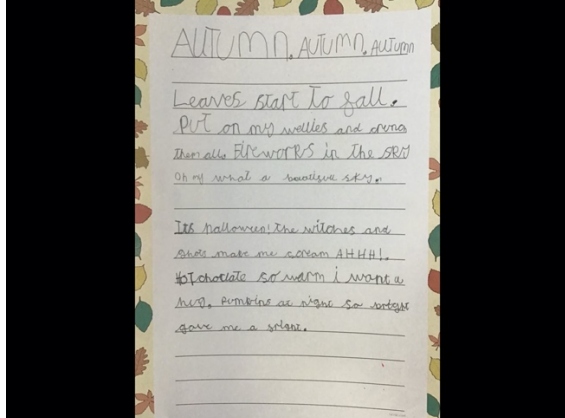 AUTUMN. AUTUMN. AUTUMN
Leaves start to fall.
Put on my wellies and
them all. Fireworks in the sky
Oh my what a sky.
Its halloween! the witches and
make me scream AHHH!.
Hot choclate so warm i want a
hug. Pumkins at night so bright
gave me a fright.